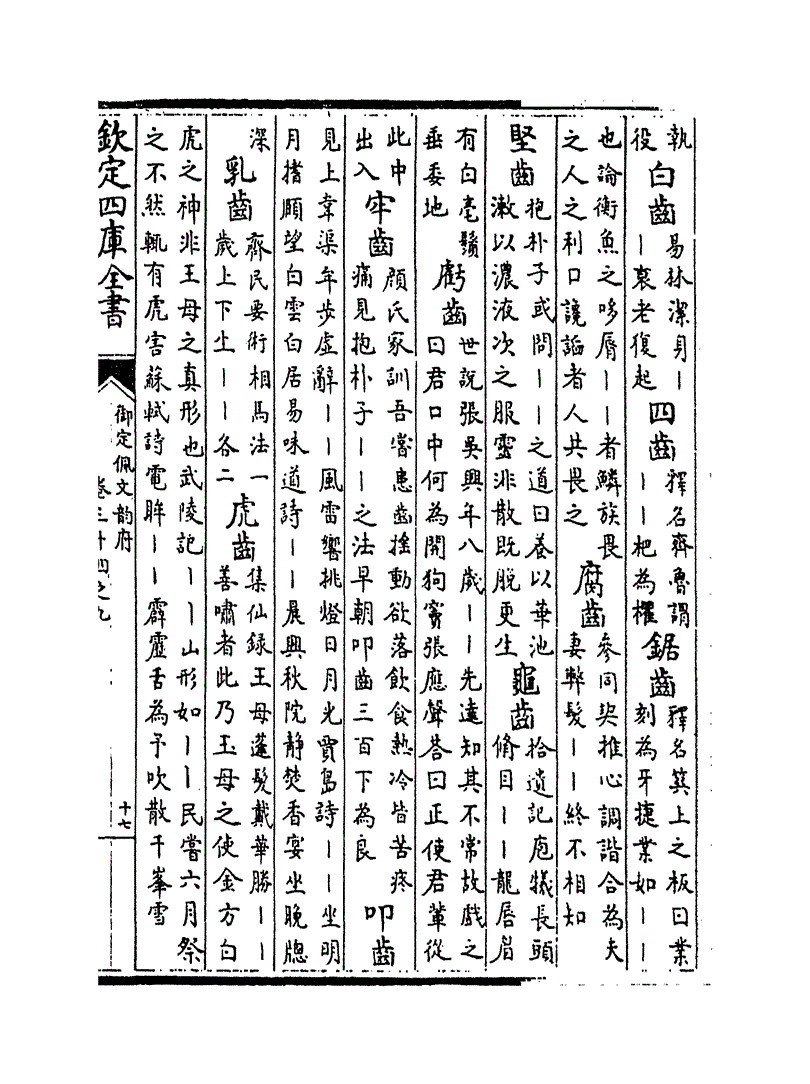 執
役
白齒
易林潔身丨
丨衰老復起
四齒
釋名齊魯謂
丨丨杷為欋
鋸齒
釋名簨上之板曰業
刻為牙捷業如丨丨
也論衡魚之哆脣丨丨者鱗族畏
之人之利口讒謟者人共畏之
腐齒
參同契推心調諧合為夫
妻弊髮丨丨終不相知
堅齒
抱朴子或問丨丨之道曰養以華池
漱以濃液次之服靈洮散既脫更生
龜齒
拾遺記庖犧長頭
脩目丨丨龍唇眉
有白毫鬚
垂委地
虧齒
世說張吳興年八歲丨丨先達知其不常故戲之
曰君口中何為開狗竇張應聲荅曰正使君輩從
此中
出入
牢齒
顔氏家訓吾嘗患齒搖動欲落飲食熱冷皆苦疼
痛見抱朴子丨丨之法早朝叩齒三百下為良
叩齒
見上韋渠牟步虛辭丨丨風雷響挑燈日月光賈島詩丨丨坐明
月搘頤望白雲白居易味道詩丨丨晨興秋院靜焚香宴坐晚牕
深
乳齒
齊民要術相馬法一
歲上下生丨丨各二
虎齒
集仙録王母蓬髮戴華勝丨丨
善嘯者此乃王母之使金方白
虎之神非王母之真形也武陵記丨丨山形如丨丨民嘗六月祭
之不然輒有虎害蘇軾詩電眸丨丨霹靂舌為予吹散千峯雪
欽定四庫全書
御定佩文韵府
卷三十四之九
十七